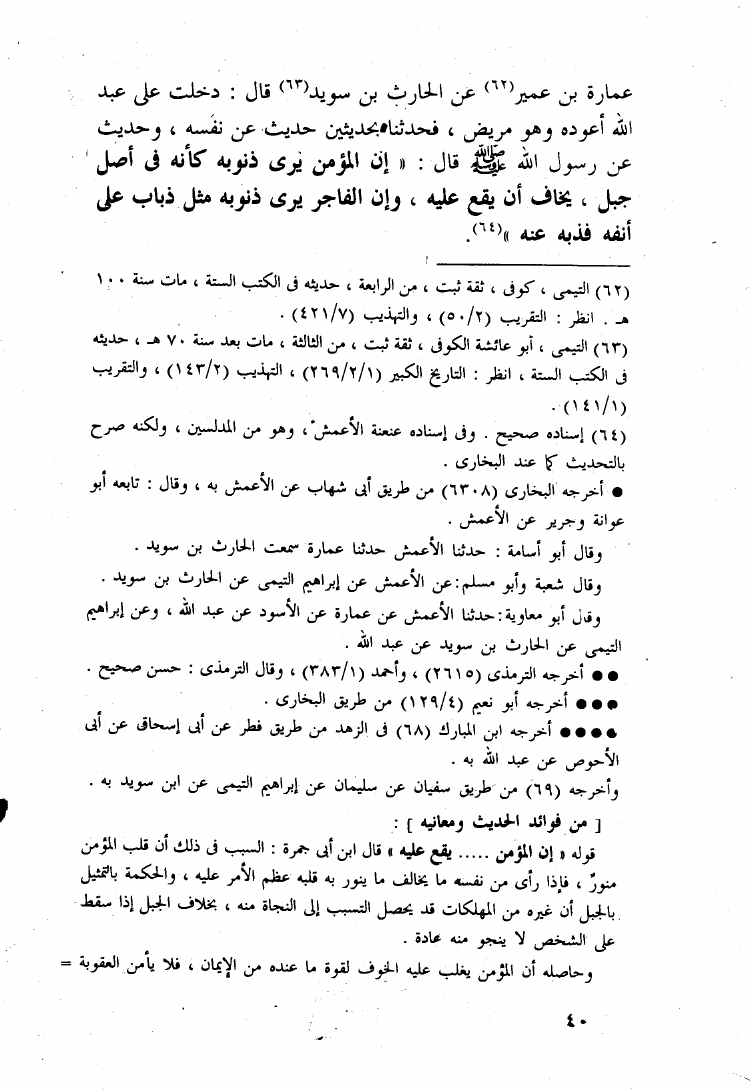 عمارة بن عمير(٦٢) عن الحارث بن سويد(٦٣) قال : دخلت على عبد
الله أعوده وهو مريض ، فحدثنا بحديثين حديث عن نفسه ، وحديث
عن رسول الله ﷺ قال : « إن المؤمن يرى ذنوبه كأنه فى أصل
جبل ، يخاف أن يقع عليه ، وإن الفاجر يرى ذنوبه مثل ذباب على
أنفه فذبه عنه »(٦٤).
(٦٢) التيمى ، كوفى ، ثقة ثبت ، من الرابعة ، حديثه فى الكتب الستة ، مات سنة ١٠٠
هـ . انظر : التقريب (٥٠/٢) ، والتهذيب (٤٢١/٧) .
(٦٣) التيمى ، أبو عائشة الكوفى ، ثقة ثبت ، من الثالثة ، مات بعد سنة ٧٠ هـ ، حديثه
فى الكتب الستة ، انظر : التاريخ الكبير (٢٦٩/٢/١) ، التهذيب (١٤٣/٢) ، والتقريب
(١٤١/١) .
(٦٤) إسناده صحيح . وفى إسناده عنعنة الأعمش ، وهو من المدلسين ، ولكنه صرح
بالتحديث كما عند البخارى .
● أخرجه البخارى (٦٣٠٨) من طريق أبى شهاب عن الأعمش به ، وقال : تابعه أبو
عوانة وجرير عن الأعمش .
وقال أبو أسامة : حدثنا الأعمش حدثنا عمارة سمعت الحارث بن سويد .
وقال شعبة وأبو مسلم : عن الأعمش عن إبراهيم التيمى عن الحارث بن سويد .
وقال أبو معاوية : حدثنا الأعمش عن عمارة عن الأسود عن عبد الله ، وعن إبراهيم
التيمى عن الحارث بن سويد عن عبد الله .
●● أخرجه الترمذى (٢٦١٥) ، وأحمد (٣٨٣/١) ، وقال الترمذى : حسن صحيح .
●●● أخرجه أبو نعيم (١٢٩/٤) من طريق البخارى .
●●●● أخرجه ابن المبارك (٦٨) فى الزهد من طريق فطر عن أبى إسحاق عن أبى
الأحوص عن عبد الله به .
وأخرجه (٦٩) من طريق سفيان عن سليمان عن إبراهيم التيمى عن ابن سويد به .
[ من فوائد الحديث ومعانيه ] :
قوله « إن المؤمن ..... يقع عليه » قال ابن أبى جمرة : السبب فى ذلك أن قلب المؤمن
منورٌ ، فإذا رأى من نفسه ما يخالف ما ينور به قلبه عظم الأمر عليه ، والحكمة بالتمثيل
بالجبل أن غيره من المهلكات قد يحصل التسبب إلى النجاة منه ، بخلاف الجبل إذا سقط
على الشخص لا ينجو منه عادة .
وحاصله أن المؤمن يغلب عليه الخوف لقوة ما عنده من الإيمان ، فلا يأمن العقوبة =
٤٠